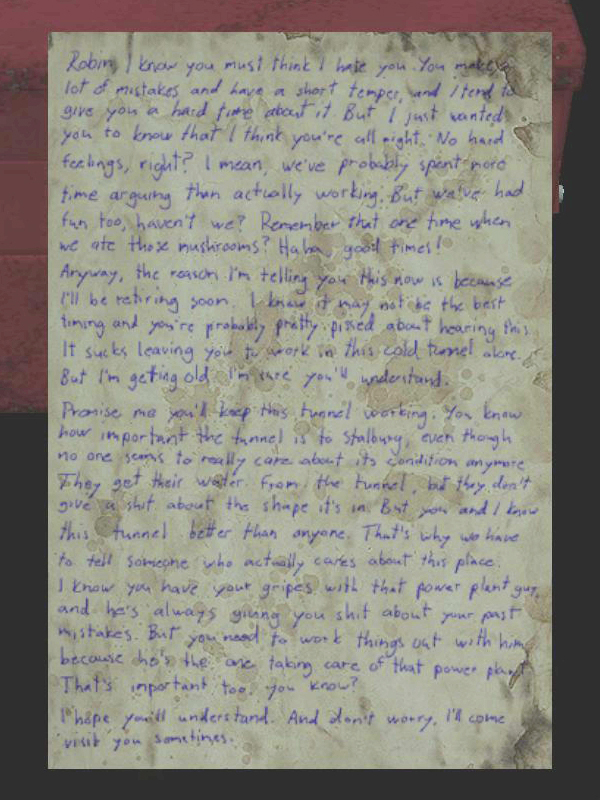 Robin, I know you must think I hate you. You make a
lot of mistakes and have a short temper, and I tend to
give you a hard time about it. But I just wanted
you to know that I think you're all right. No hard
feelings, right? I mean, we've probably spent more
time arguing than actually working. But we've had
fun too, haven't we? Remember that one time when
we ate those mushrooms? Haha, good times!
Anyway, the reason I'm telling you this now is because
I'll be retiring soon. I know it may not be the best
timing and you're probably pretty pissed about hearing this.
It sucks leaving you to work in this cold tunnel alone.
But I'm getting old. I'm sure you'll understand.
Promise me you'll keep this tunnel working. You know
how important the tunnel is to Stalburg, even though
no one seems to really care about its condition anymore.
They get their water from the tunnel, but they don't
give a shit about the shape it's in. But you and I know
this tunnel better than anyone. That's why we have
to tell someone who actually cares about this place.
I know you have your gripes with that power plant guy,
and he's always giving you shit about your past
mistakes. But you need to work things out with him,
because he's the one taking care of that power plant.
That's important too, you know?
I hope you'll understand. And don't worry, I'll come
visit you sometimes.